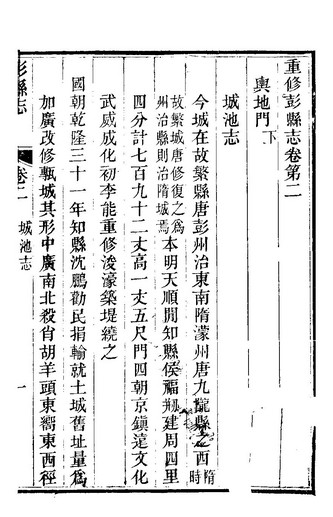 重修彭縣志卷第二
輿地門下
城池志
今城在故繁縣唐彭州治東南隋濛州唐九隴縣之西隋時
故繁城唐修復之為
州治縣則治隋城焉本明天順閒知縣侯福刱建周四里
四分計七百九十二丈高一丈五尺門四朝京鎮遠文化
武威成化初李能重修浚濠築堤繞之
國朝乾隆三十一年知縣沈鵬勸民捐輸就土城舊址量為
加廣改修甎城其形中廣南北殺肖胡羊頭東嚮東西徑
彭縣志
卷二
城池志
一